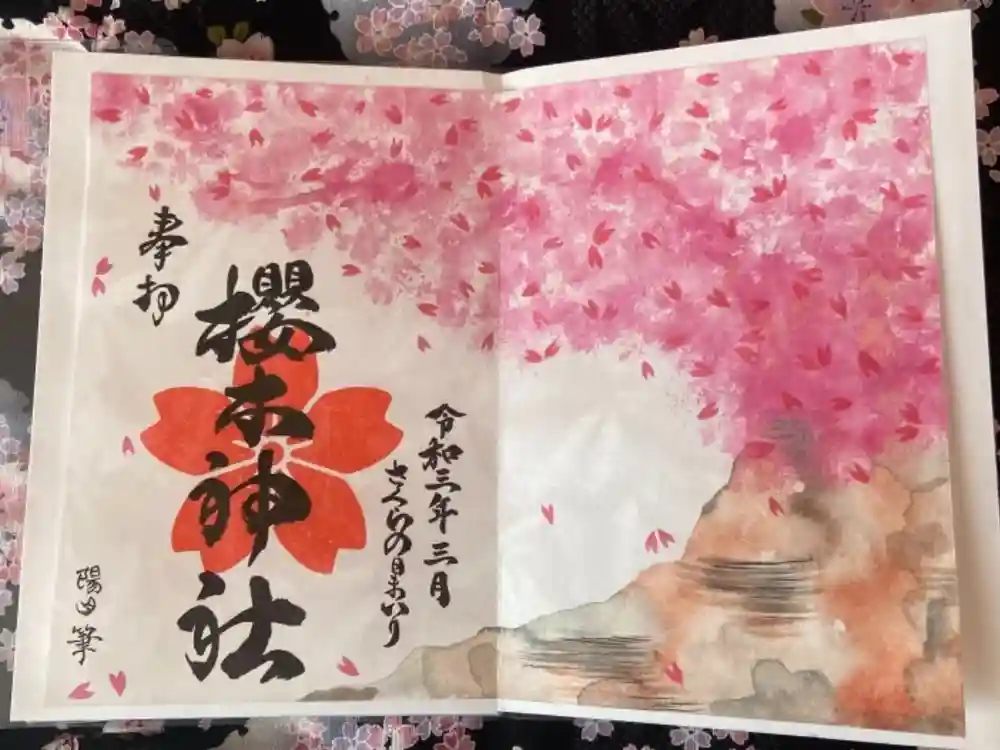 令和三年三月
さくらの日まいり
櫻木神社
奉拝
陽由 筆